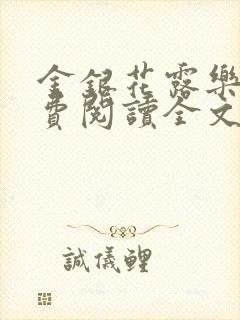 金銀花露樂
費閱讀全文
誠儀鯉